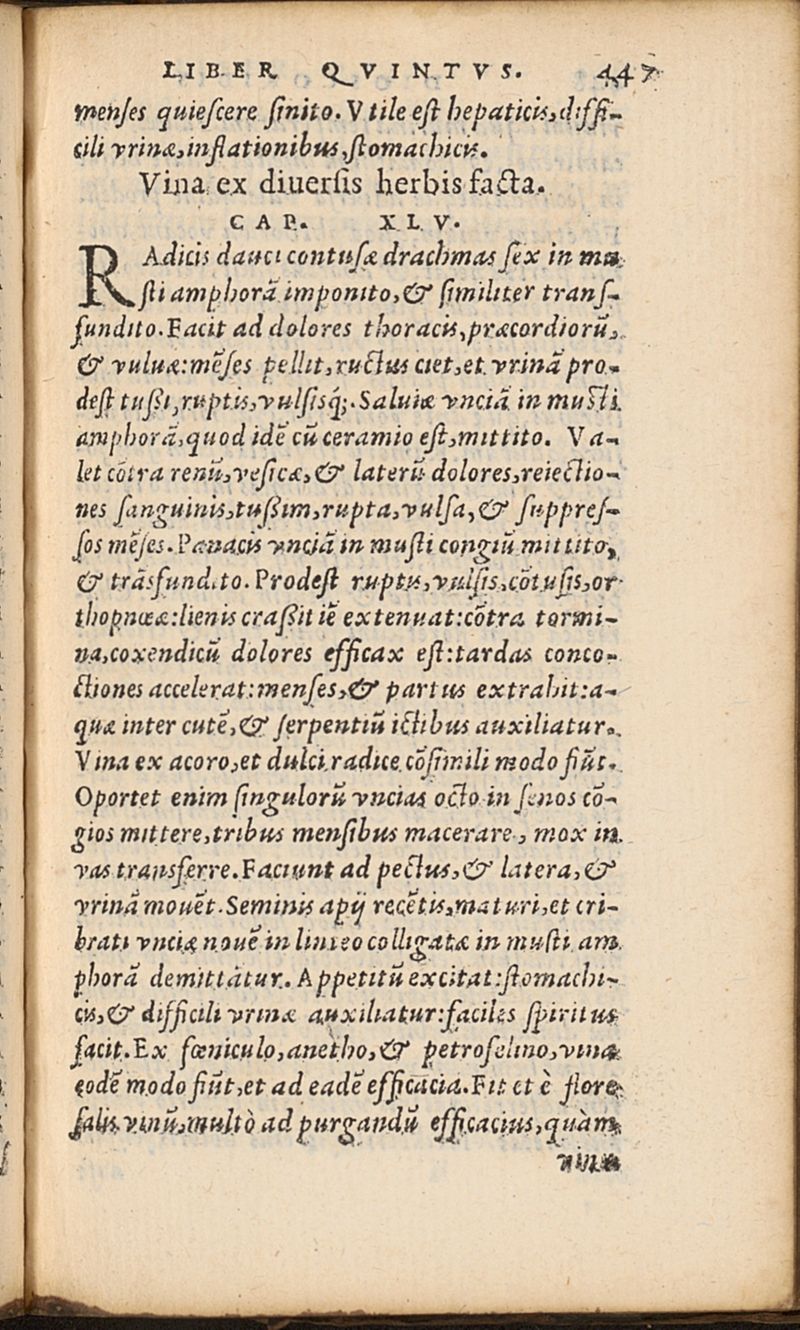 LIBER QVINTVS. 447
menſes quieſcere ſinito. Vtile eſt hepaticis, diffi-
cili vrinæ, inflationibus, ſtomachicis.
Vina ex diuerſis herbis facta.
CAP. XLV.
RAdicis dauci contuſæ drachmas ſex in mu
ſti amphorā imponito, & ſimiliter tranſ-
fundito. Facit ad dolores thoracis, præcordiorū,
& vuluæ: mēſes pellit, ructus ciet, et vrinā pro-
deſt tuſſi, ruptis, vulſisq́;. Saluiæ vnciā in muſti
amphorā, quod idē cū ceramio eſt, mittito. Va-
let cōtra renū, veſicæ, & laterū dolores, reiectio-
nes ſanguinis, tuſſim, rupta, vulſa, & ſuppreſ-
ſos mēſes. Panacis vnciā in muſti congiū mittito,
& trāſfundito. Prodeſt ruptis, vulſis, cōtuſis, or
thopnœæ: lienis craſſitiē extenuat: cōtra tormi-
na, coxendicū dolores efficax eſt: tardas conco-
ctiones accelerat: menſes, & partus extrahit: a-
quæ inter cutē, & ſerpentiū ictibus auxiliatur.
Vina ex acoro, et dulci radice cōſimili modo fiūt.
Oportet enim ſingulorū vncias octo in ſenos cō-
gios mittere, tribus menſibus macerare, mox in
vas transferre. Faciunt ad pectus, & latera, &
vrinā mouēt. Seminis apij recētis, maturi, et cri-
brati vnciæ nouē in linteo colligatæ in muſti am
phorā demittātur. Appetitū excitat: ſtomachi-
cis, & difficili vrinæ auxiliatur: faciles ſpiritus
facit. Ex fœniculo, anetho, & petroſelino, vina
eodē modo fiūt, et ad eadē efficacia. Fit et è flore
ſalis vinū, multò ad purgandū efficacius, quàm
vina